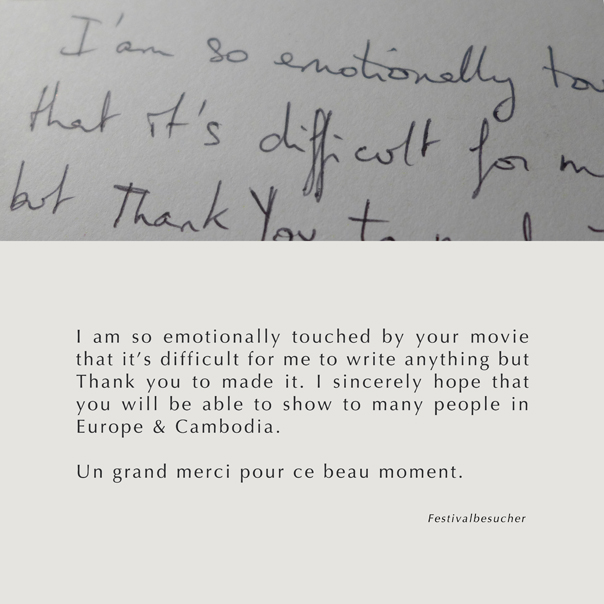 I'am so emotionally
that it's difficult for
but Thank You
I am so emotionally touched by your movie
that it's difficult for me to write anything but
Thank you to made it. I sincerely hope that
you will be able to show to many people in
Europe & Cambodia.
Un grand merci pour ce beau moment.
Festivalbesucher